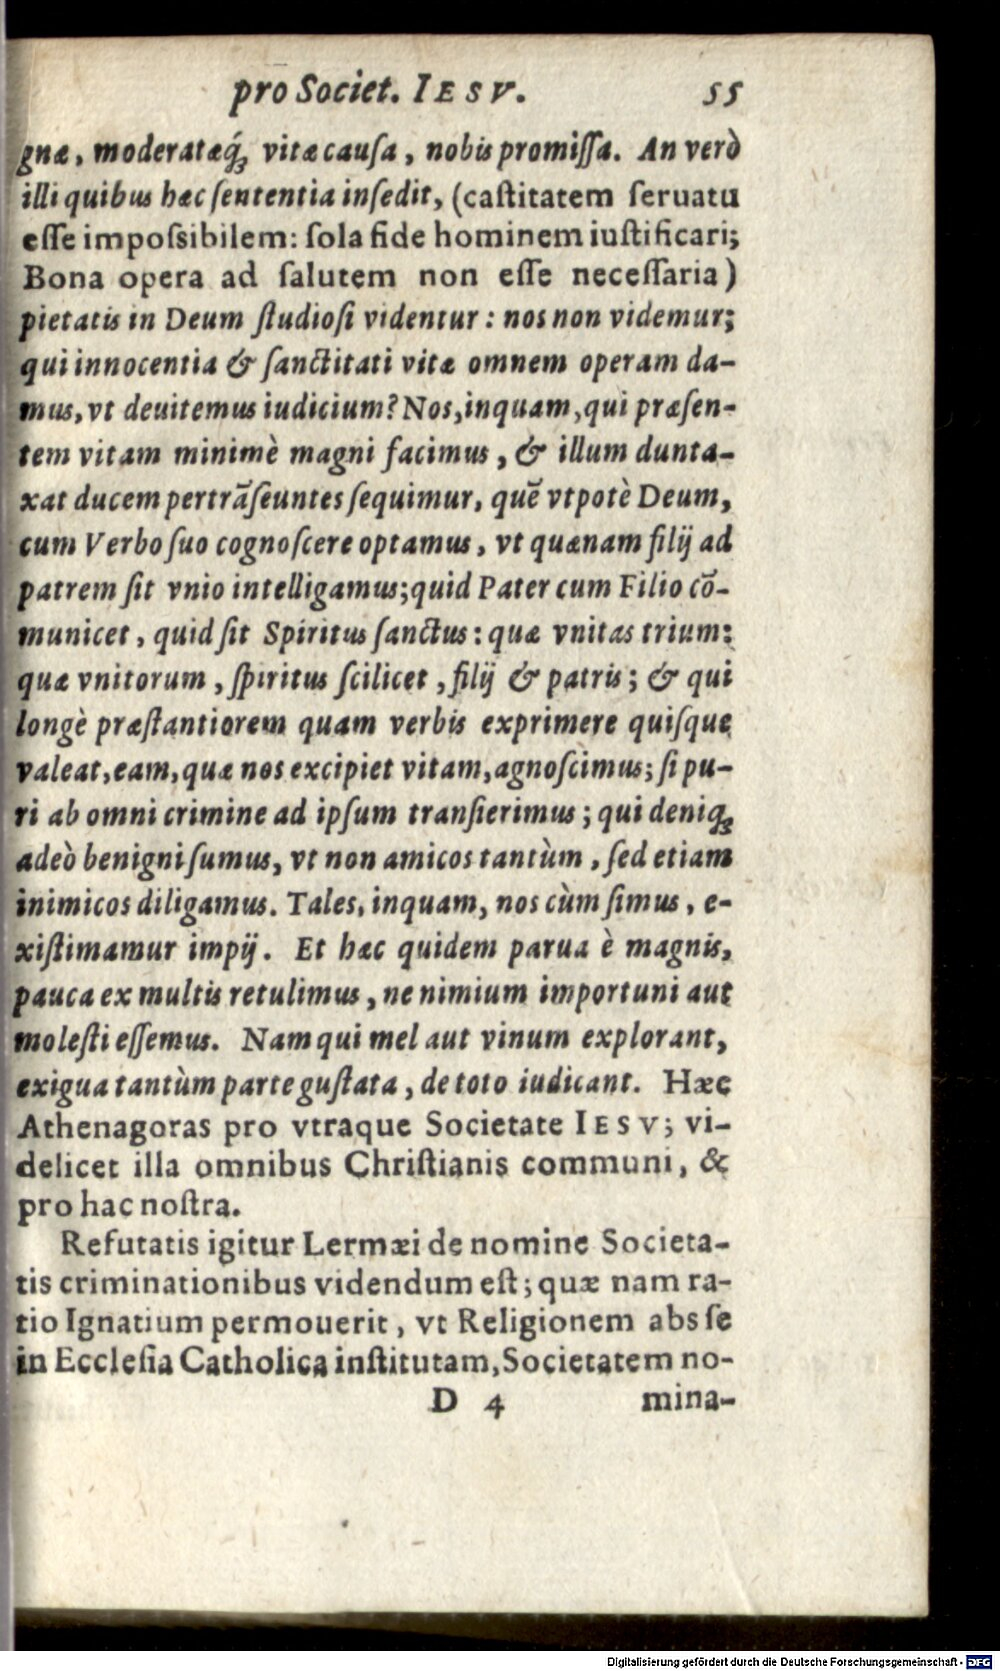 pro Societ. IESV. 55
gnæ, moderatæq́ꝫ vitæ causa, nobis promissa. An verò
illi quibus hæc sententia insedit, (castitatem seruatu
esse impossibilem: sola fide hominem iustificari;
Bona opera ad salutem non esse necessaria)
pietatis in Deum studiosi videntur: nos non videmur;
qui innocentia & sanctitati vitæ omnem operam da-
mus, vt deuitemus iudicium? Nos, inquam, qui præsen-
tem vitam minimè magni facimus, & illum dunta-
xat ducem pertrāseuntes sequimur, quē vtpotè Deum,
cum Verbo suo cognoscere optamus, vt quænam filij ad
patrem sit vnio intelligamus; quid Pater cum Filio cō-
municet, quid sit Spiritus sanctus: quæ vnitas trium:
quæ vnitorum, spiritus scilicet, filij & patris; & qui
longè præstantiorem quam verbis exprimere quisque
valeat, eam, quæ nos excipiet vitam, agnoscimus; si pu-
ri ab omni crimine ad ipsum transierimus; qui deniqꝫ
adeò benigni sumus, vt non amicos tantùm, sed etiam
inimicos diligamus. Tales, inquam, nos cùm simus, e-
xistimamur impij. Et hæc quidem parua è magnis,
pauca ex multis retulimus, ne nimium importuni aut
molesti essemus. Nam qui mel aut vinum explorant,
exigua tantùm parte gustata, de toto iudicant. Hæc
Athenagoras pro vtraque Societate IESV; vi-
delicet illa omnibus Christianis communi, &
pro hac nostra.
Refutatis igitur Lermæi de nomine Societa-
tis criminationibus videndum est; quæ nam ra-
tio Ignatium permouerit, vt Religionem abs se
in Ecclesia Catholica institutam, Societatem no-
D 4 mina-
Digitalisierung gefördert durch die Deutsche Forschungsgemeinschaft - DFG